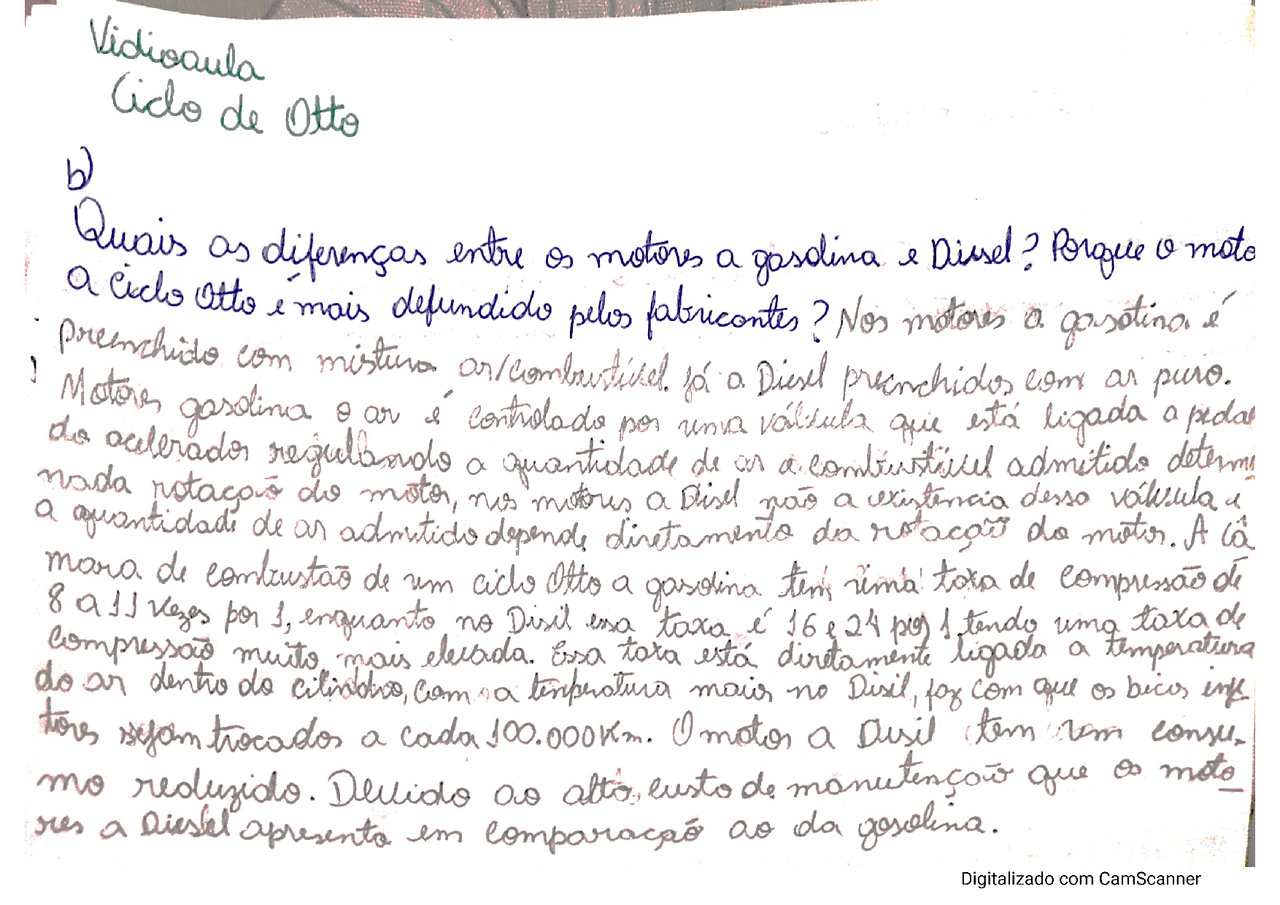 Vidioaula
Ciclo de Otto
b)
Quais as diferenças entre os motores a gasolina e Diesel? Porque o moto
a Ciclo Otto é mais defundido pelos fabricantes? Nos motores a gasolina é
preenchido com mistura ar/combustível. Já a Diesel preenchidos com ar puro.
Motores gasolina o ar é controlado por uma válvula que está ligada a pedal
do acelerador regulando a quantidade de ar a combustível admitido determi
nada rotação do motor, nos motores a Disel não a existência dessa válvula e
a quantidade de ar admitido depende diretamento da rotação do motor. A Câ
mara de combustão de um ciclo Otto a gasolina tem uma taxa de compressão de
8 a 11 vezes por 1, enquanto no Disil essa taxa é 16 e 24 por 1 tendo uma taxa de
compressão muito mais elevada. Essa taxa está diretamente ligada a temperatura
do ar dentro do cilindro, com a temperatura mais no Disil, faz com que os bicos inje
tores sejam trocados a cada 100.000 Km. O motor a Disil tem um consu-
mo reduzido. Devido ao alto custo de manutenção que os moto
res a Diesel apresenta em comparação ao da gasolina.
Digitalizado com CamScanner